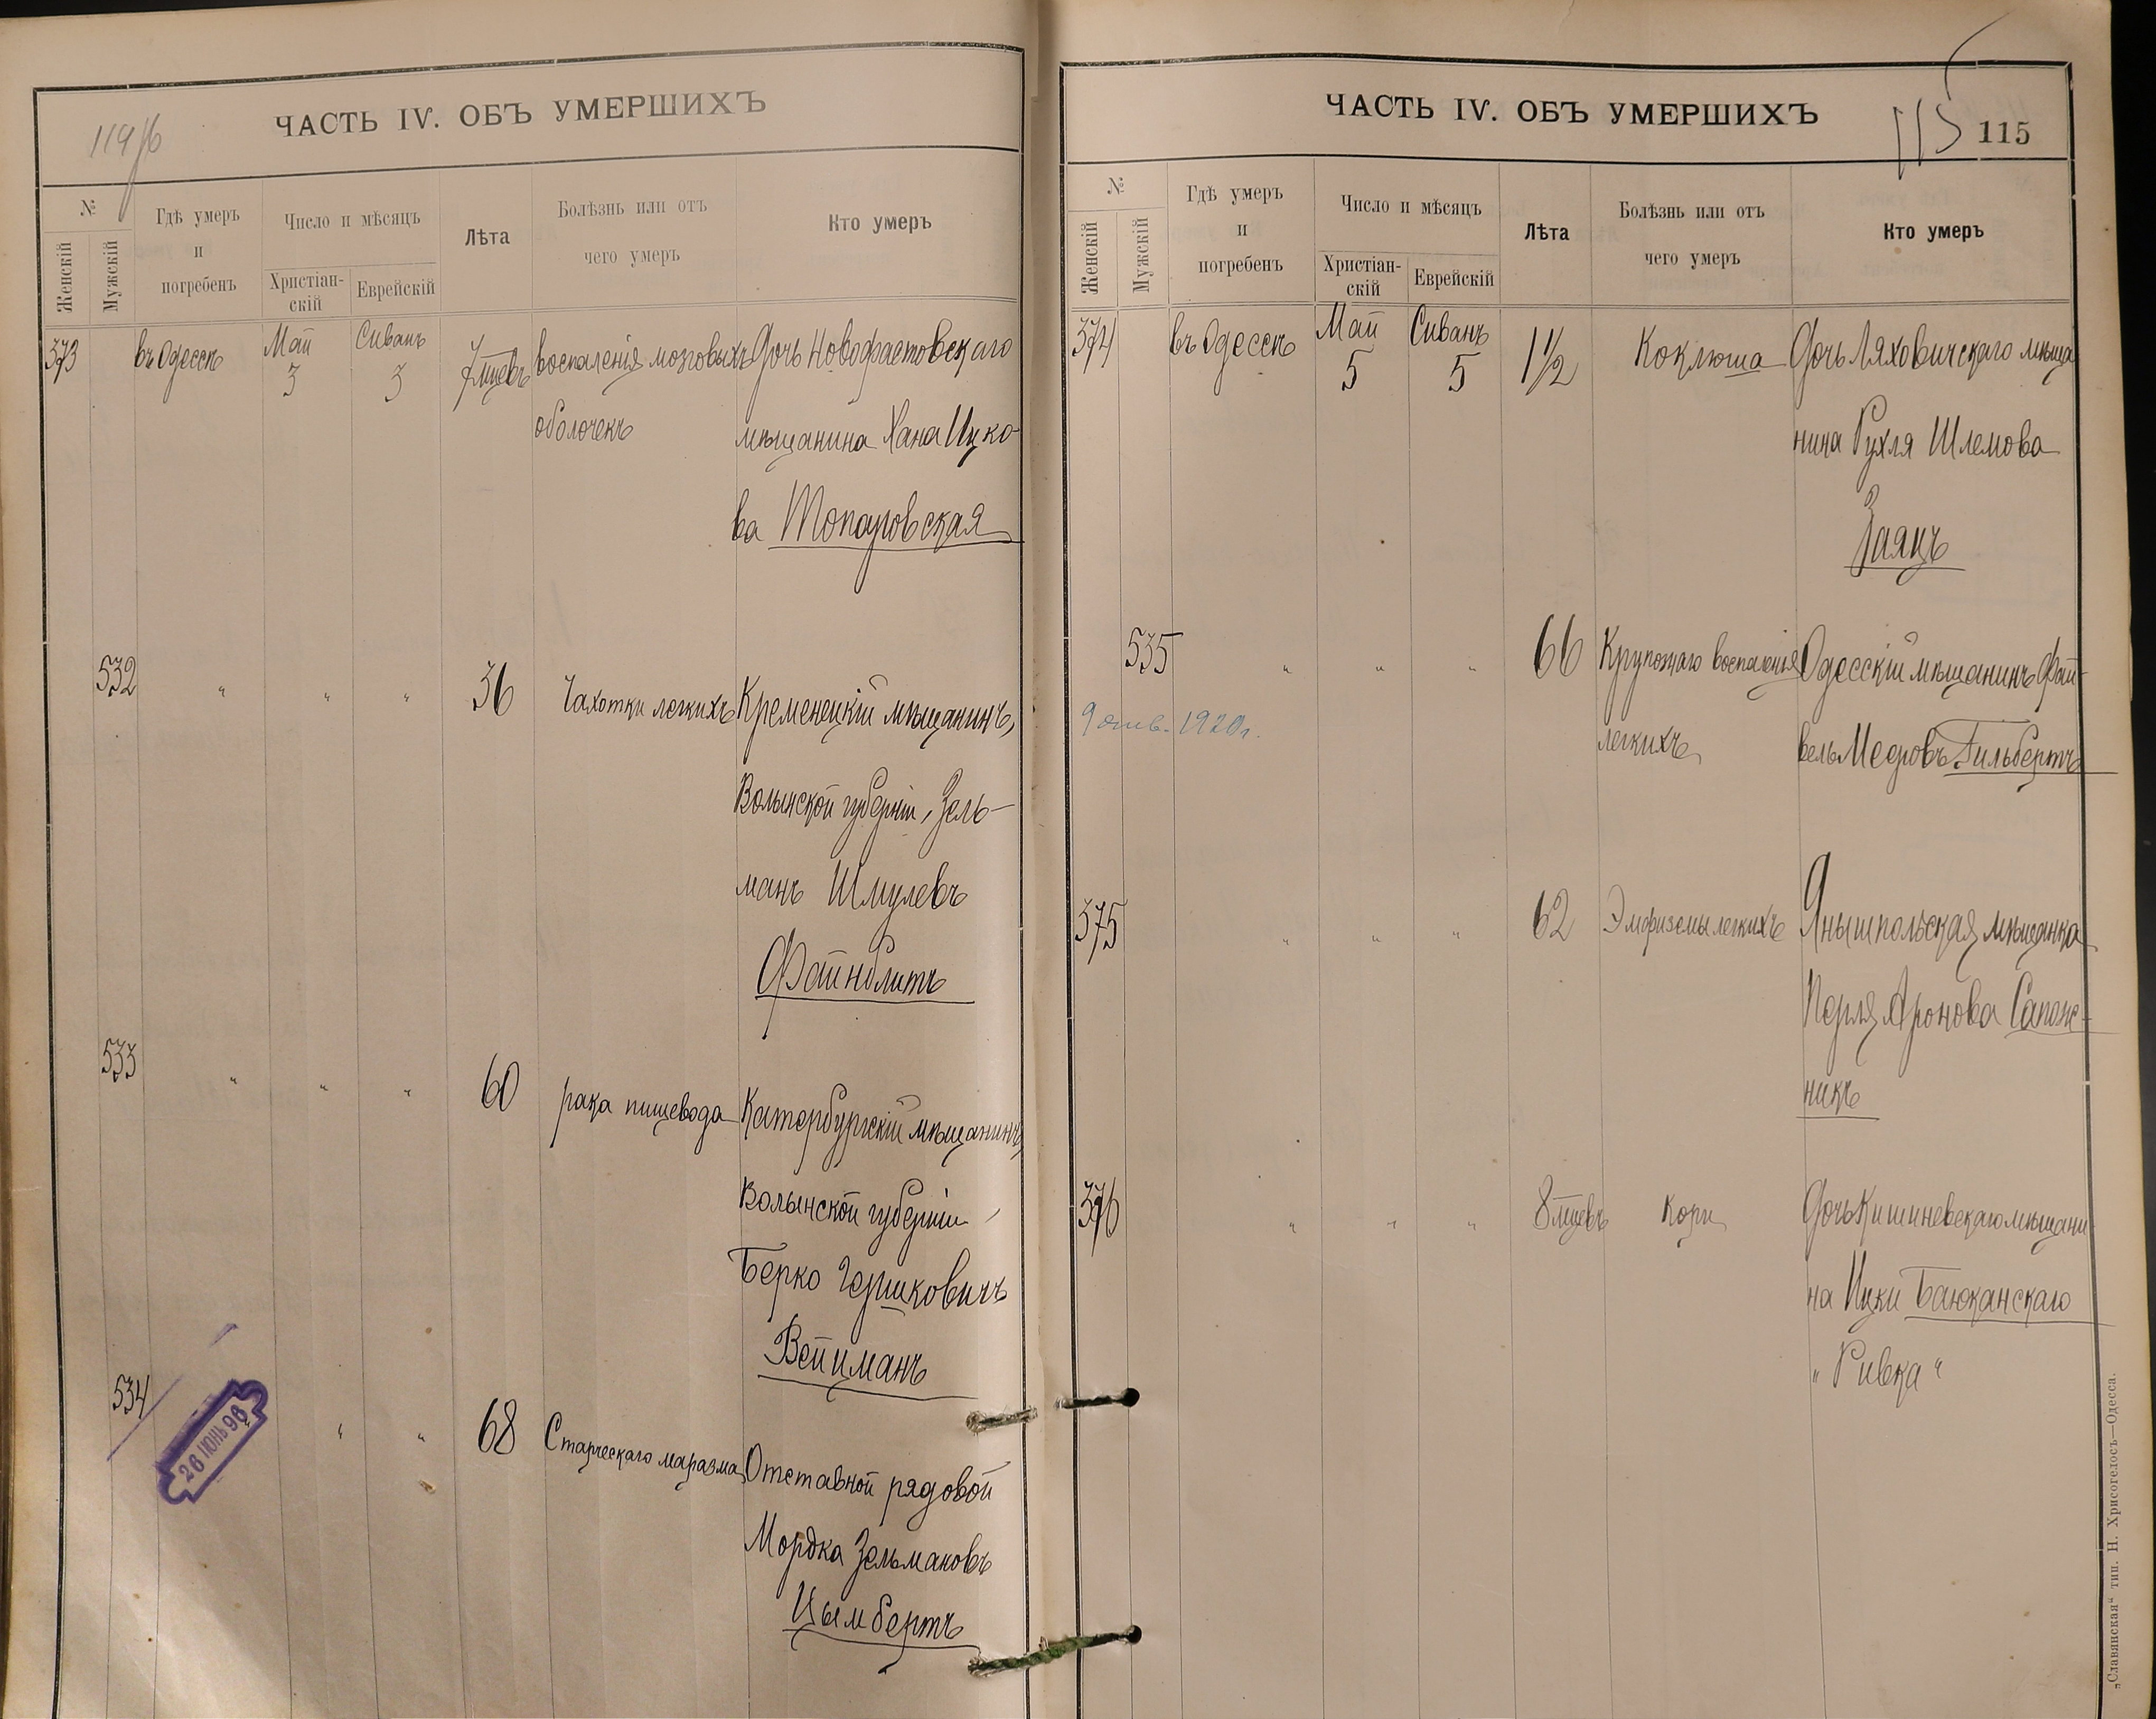 ЧАСТЬ IV. ОБЪ УМЕРШИХЪ
№
Женскій
Мужскій
Гдѣ умеръ
и
погребенъ
Число и мѣсяцъ
Христіан-
скій
Еврейскій
Лѣта
Болѣзнь или отъ
чего умеръ
Кто умеръ
373 въ Одессѣ Май 3 Сиванъ 3 7 мцевъ воспаленія мозговыхъ Дочь Новофастовскаго
оболочекъ мѣщанина Хана Ицко-
ва
532 " " " 36 Чахотки легкихъ Кременецкій мѣщанинъ,
Волынской губерніи, Зель-
манъ Шмулевъ
Файнблитъ
533 " " " 60 рака пищевода Катербургскій мѣщанинъ,
Волынской губерніи,
Берко Гершковичъ
Вейцманъ
534 " " 68 Старческаго маразма Отставной рядовой
26 ІЮНЬ 96
Мордка Зельмановъ
Цымбертъ
ЧАСТЬ IV. ОБЪ УМЕРШИХЪ
115 115
№
Женскій
Мужскій
Гдѣ умеръ
и
погребенъ
Число и мѣсяцъ
Христіан-
скій
Еврейскій
Лѣта
Болѣзнь или отъ
чего умеръ
Кто умеръ
374 въ Одессѣ Май 5 Сиванъ 5 1½ Коклюша Дочь Ляховичскаго мѣща
нина Рухля Шлемова
Заяцъ
535 " " " 66 Крупознаго воспаленія Одесскій мѣщанинъ Фай-
1920 г.
легкихъ вель Мееровъ Гильбертъ
375 " " " 62 Эмфиземы легкихъ Янышпольская мѣщанка
Перля Аронова Сапож-
никъ
376 " " " 8 мцевъ Кори Дочь Кишиневскаго мѣщани
на Ицки Баюканскаго
"Ривка"
„Славянская" тип. Н. Хрисогелосъ—Одесса.